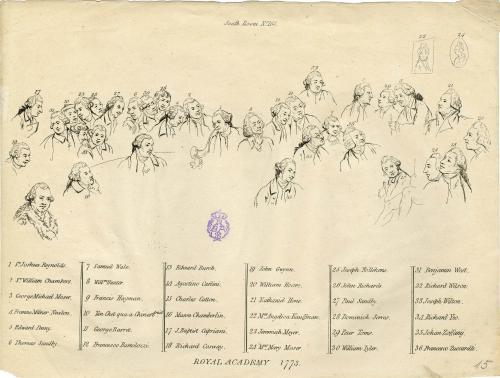 South Room N.º
1 Sr. Joshua Reynolds.
2 Sr. William Chambers.
3 George Michael Moser.
4 Francis Milner Newton.
5 Edward Penny.
6 Thomas Sandby.
7 Samuel Wale.
8 Willm. Hunter
9 Francis Hayman.
10 Tan Chet qua a Chinese
11 George Barret
12 Francesco Bartolozzi
13 Edward Burch.
14 Agostino Carlini.
15 Charles Catton.
16 Mason Chamberlin.
17 J. Baptist Cipriani.
18 Richard Cosway.
19 John Gwynn.
20 William Hoare.
21 Nathaniel Hone.
22 Mrs. Angelica Kauffman.
23 Jeremiah Meyer.
24 Mrs. Mary Moser.
25 Joseph Nollekens.
26 John Richards.
27 Paul Sandby.
28 Dominick Serres.
29 Peter Toms.
30 William Tyler.
31 Benjamin West.
32 Richard Wilson.
33 Joseph Wilton.
34 Richard Yeo.
35 Johan Zoffany.
36 Francesco Zuccarelli.
ROYAL ACADEMY 1773.
15